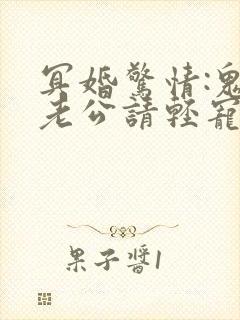 冥婚驚情:鬼
老公請輕寵
果子醬1